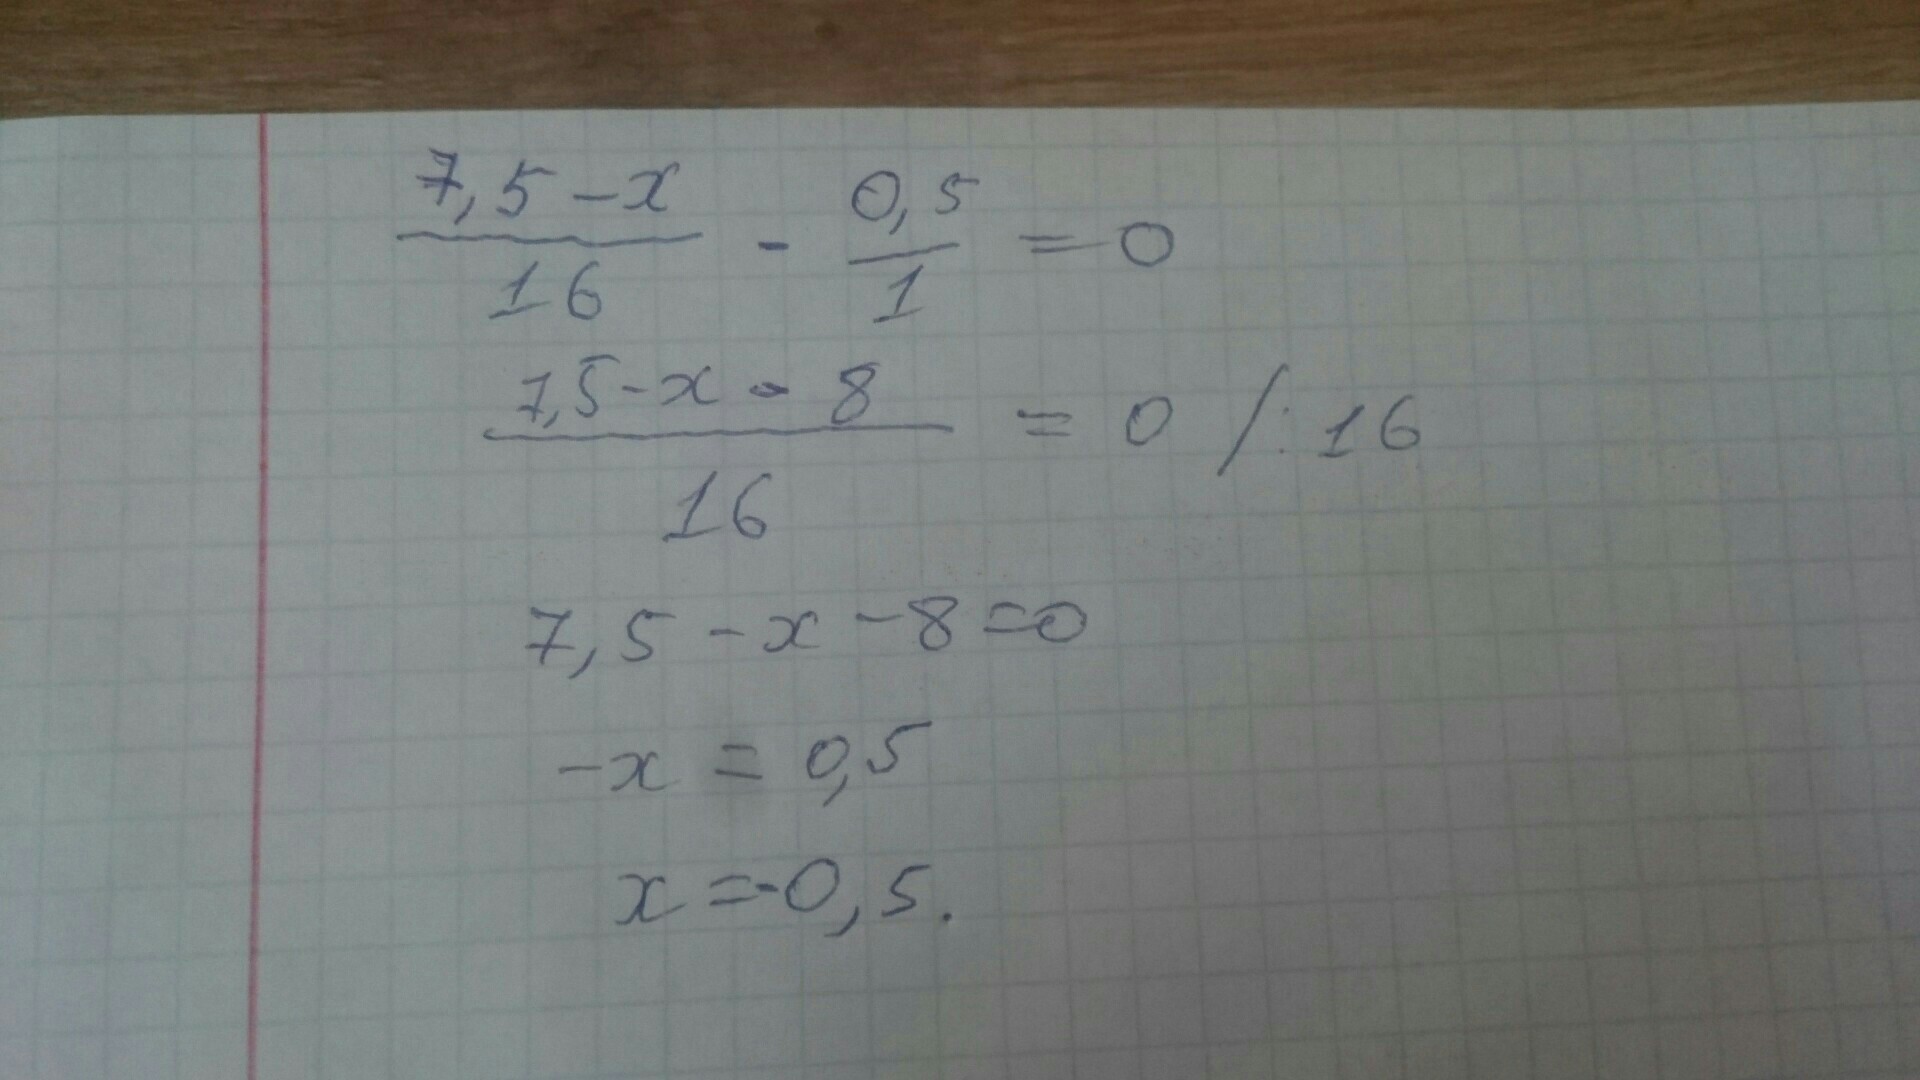 7,5-x/16 - 0,5/1 = 0
7,5-x-8/16 = 0 /:16
7,5-x-8=0
-x = 0,5
x=-0,5.